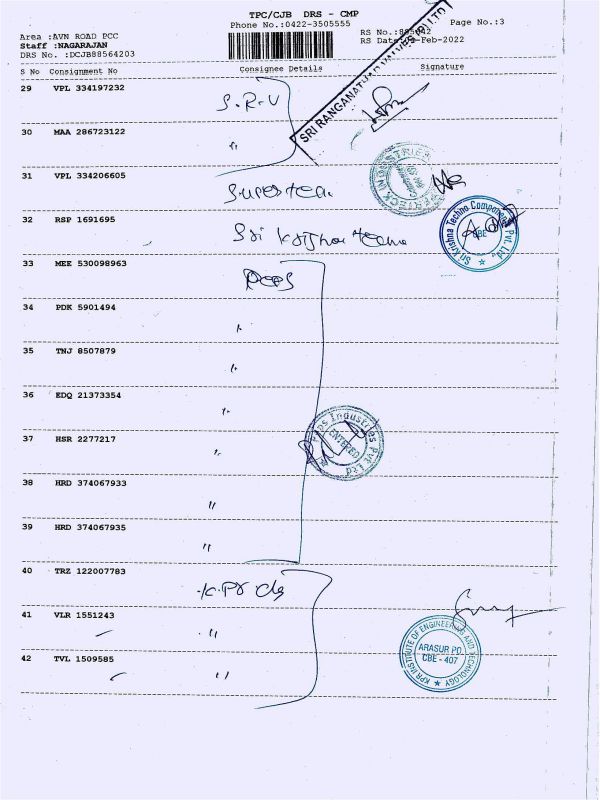 TPC/CJB DRS - CMP
Phone No.:0422-3505555
Page No.:3
Area :AVN ROAD PCC
Staff :NAGARAJAN
DRS No. :DCJB88564203
RS No.:
RS Dat -Feb-2022
S No Consignment No Consignee Details Signature
SRI RANGANATHAR VALVES (P) LTD
29 VPL 334197232 S.R.V
30 MAA 286723122 "
31 VPL 334206605
32 RSP 1691695 Sri
Sri Krishna Techno Components Pvt. Ltd.
CBE
33 MEE 530098963
34 PDK 5901494 "
35 TNJ 8507879 "
36 EDQ 21373354 "
37 HSR 2277217 "
Peps Industries Pvt Ltd
ENTERED
38 HRD 374067933 "
39 HRD 374067935 "
40 TRZ 122007783
41 VLR 1551243 "
42 TVL 1509585 "
KPR INSTITUTE OF ENGINEERING AND TECHNOLOGY
ARASUR PO.
CBE - 407